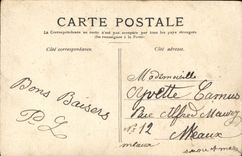 CARTE POSTALE
La Correspondance au recto n'est pas acceptée par tous les pays étrangers
(Se renseigner à la Poste)
Côté correspondance.
Côté adresse.
Bons Baisers
Mademoiselle
Yvette Camus
Rue Alfred Maury
No 12
Meaux
meaux